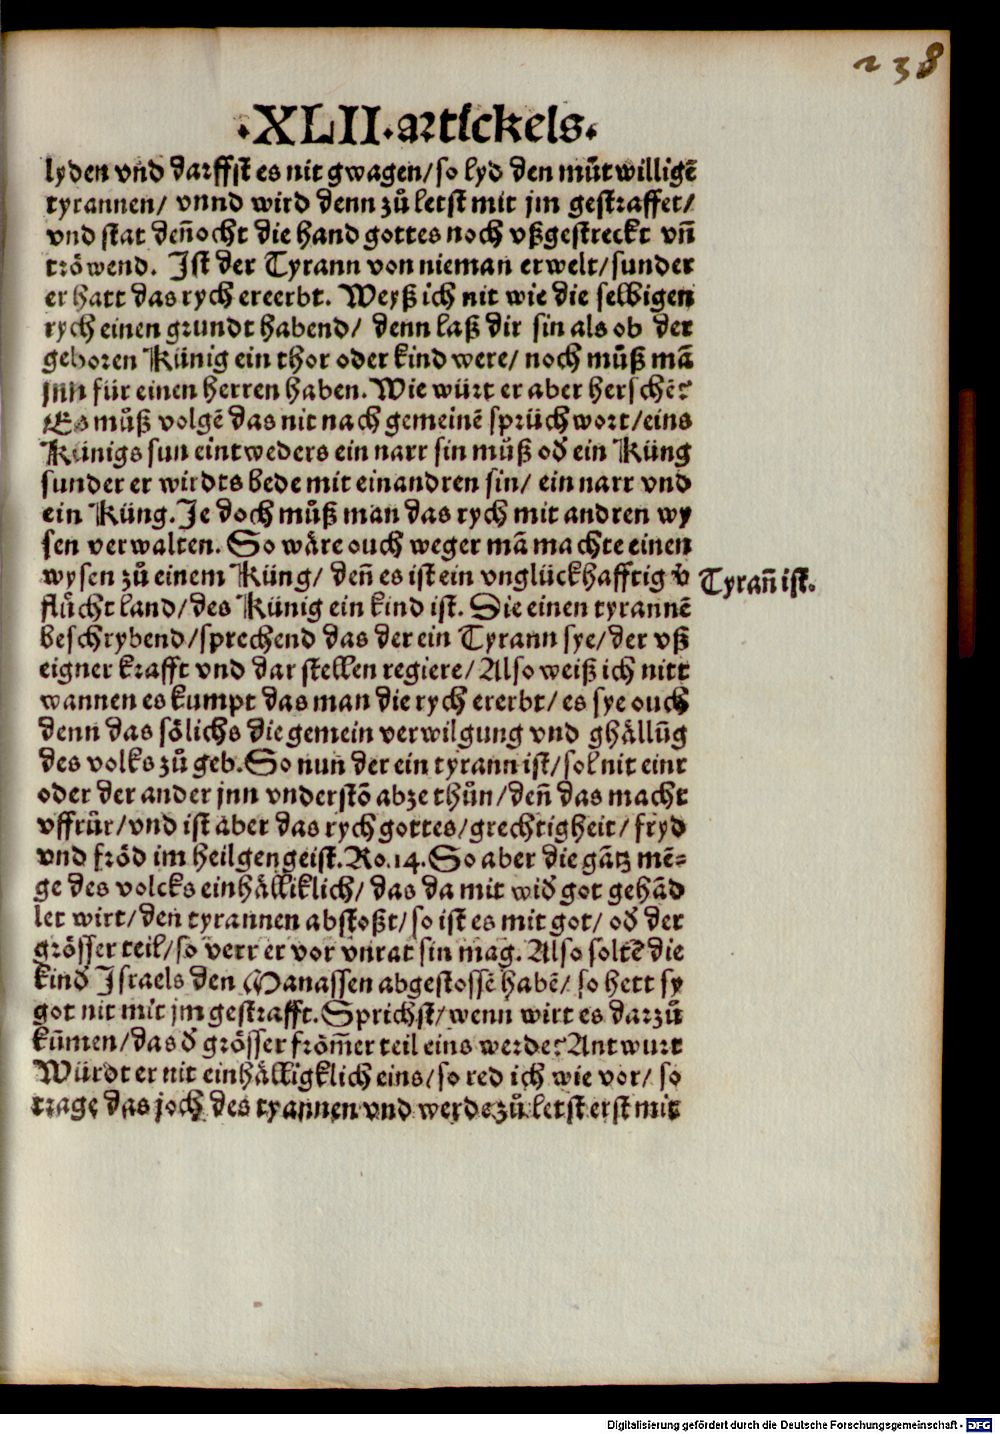 238
·XLII·artickels·
lyden vnd darffst es nit gwagen/so lyd den můtwilligē
tyrannen/ vnnd wird denn zů letst mit jm gestraffet/
vnd stat deñocht die hand gottes noch vßgestreckt vñ
tröwend. Ist der Tyrann von nieman erwelt/sunder
er hatt das rych ererbt. Weyß ich nit wie die selbigen
rych einen grundt habend/ denn laß dir sin als ob der
geboren Künig ein thor oder kind were/ noch můß mā
jnn für einen herren haben. Wie würt er aber herschē?
Es můß volgē das nit nach gemeinē sprüchwort/eins
Künigs sun eintweders ein narr sin můß oď ein Küng
sunder er wirdts bede mit einandren sin/ ein narr vnd
ein Küng. Je doch můß man das rych mit andren wy
sen verwalten. So wäre ouch weger mā machte einen
wysen zů einem Küng/ deñ es ist ein vnglückhafftig v̄
Tyrañ ist.
flůcht land/des Künig ein kind ist. Die einen tyrannē
beschrybend/sprechend das der ein Tyrann sye/der vß
eigner krafft vnd darstellen regiere/Also weiß ich nitt
wannen es kumpt das man die rych ererbt/ es sye ouch
denn das sölichs die gemein verwilgung vnd ghällūg
des volks zů geb. So nun der ein tyrann ist/sol nit einr
oder der ander jnn vnderstō abzethůn/deñ das macht
vffrůr/vnd ist aber das rych gottes/grechtigheit/ fryd
vnd fröd im heilgen geist. Ro. 14. So aber die gātz mē⸗
ge des volcks einhälliklich/ das da mit wiď got gehād
let wirt/den tyrannen abstoßt/so ist es mit got/ oď der
grösser teil/so verr er vor vnrat sin mag. Also soltē die
kind Israels den Manassen abgestossē habē/ so hett sy
got nit mit jm gestrafft. Sprichst/wenn wirt es darzů
kūmen/das ď grösser frōmer teil eins werde? Antwurt
Würdt er nit einhälligklich eins/so red ich wie vor/ so
trage das joch des tyannen vnd werde zů letst erst mit
Digitalisierung gefördert durch die Deutsche Forschungsgemeinschaft - DFG